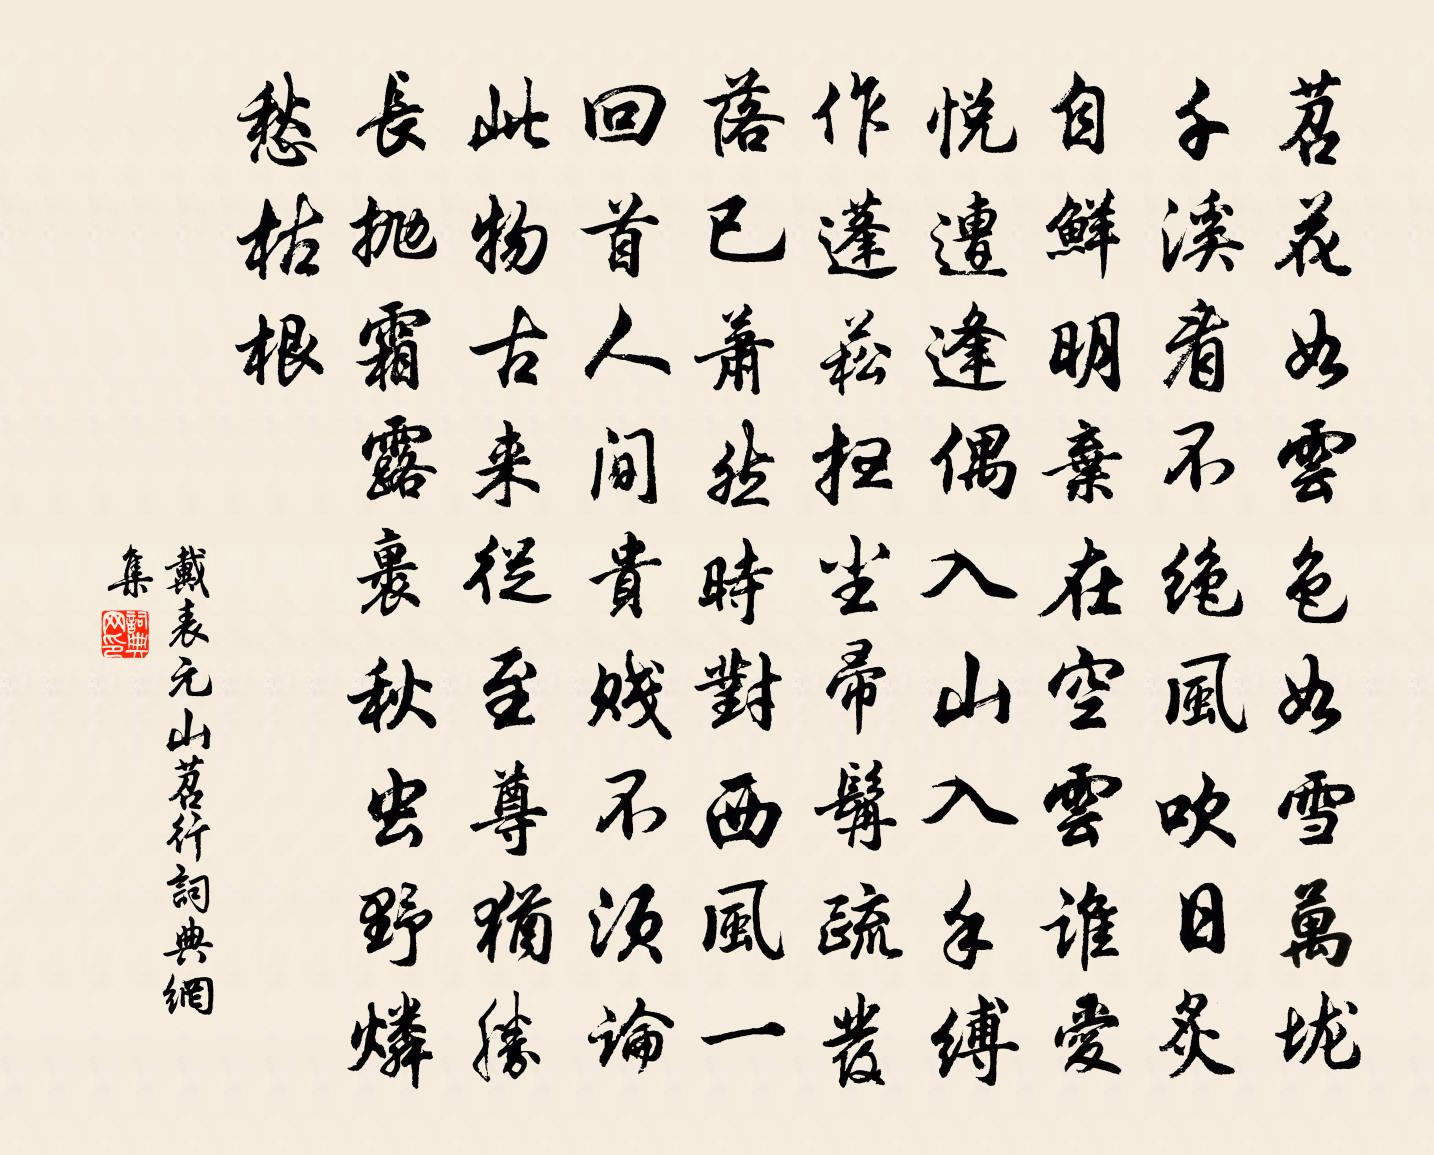 苕花如雲色如雪萬垅
千溪看不绝風吹日炙
自鮮明棄在空雲誰愛
悦遭逢偶入山入手縛
作蓬菘扫尘帚髯疏叢
落已蕭然時對西風一
回首人间貴贱不须論
此物古来從至尊猶勝
長抛霜露裹秋虫野燐
愁枯根
戴表元山苕行詞典網
集
詞典网印